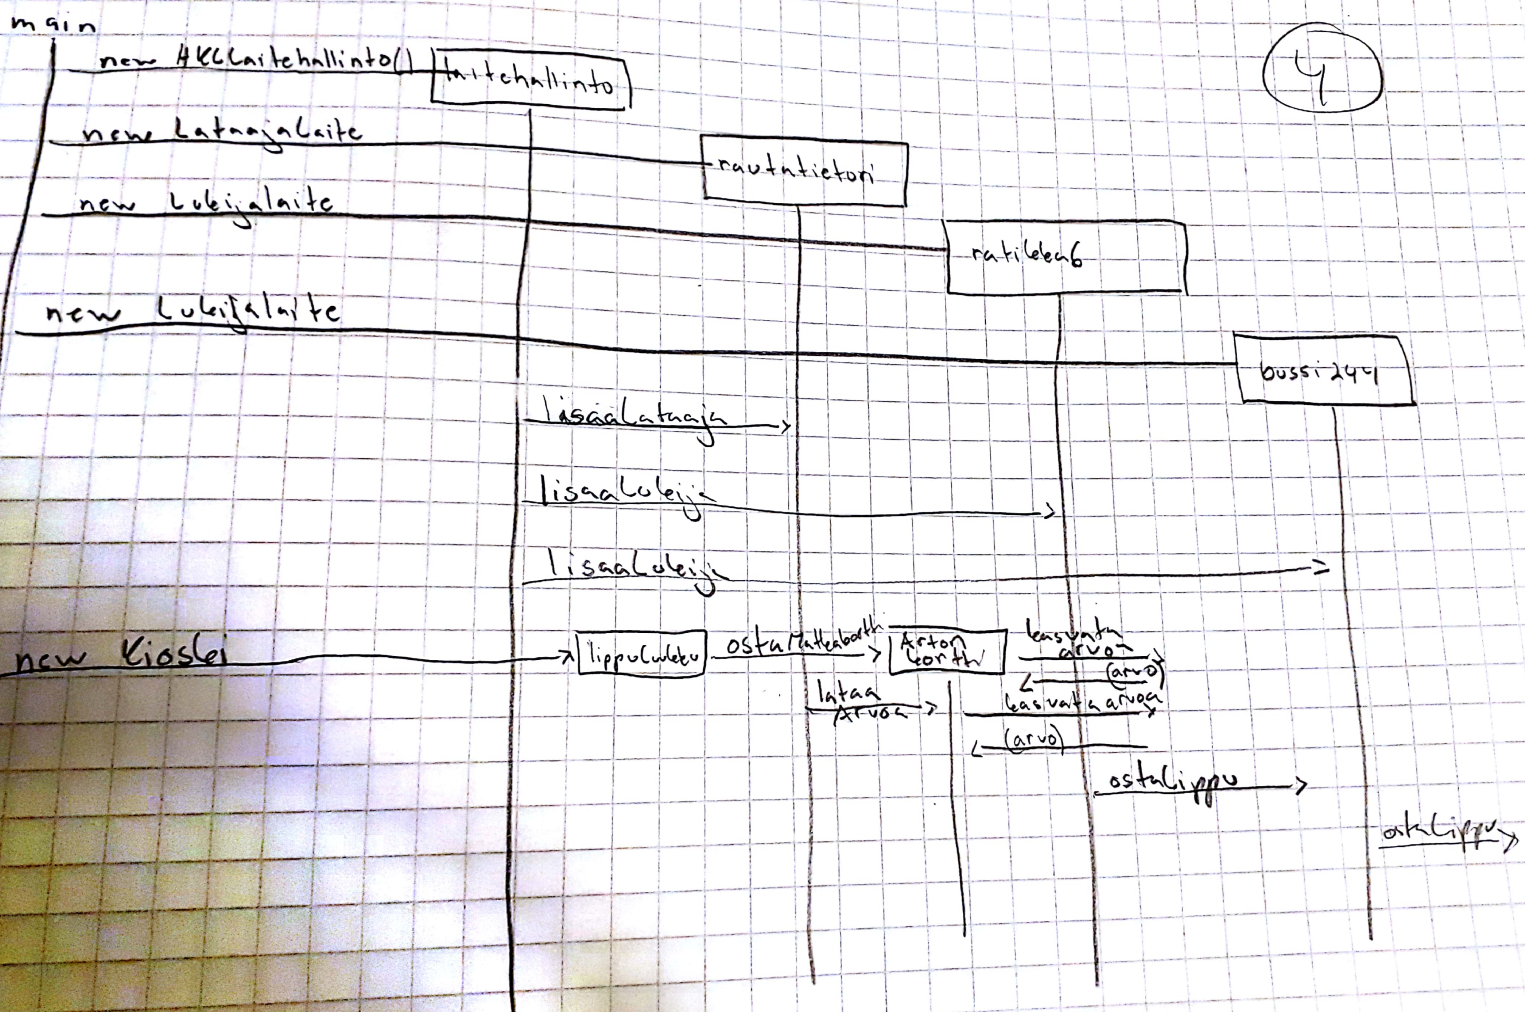 main
4
new HKLLaitehallinto()
laitehallinto
new LataajaLaite
rautatietori
new Lukijalaite
ratikka6
new Lukijalaite
bussi244
lisaaLataaja
lisaaLukija
lisaaLukija
new Kioski
lippuLuukku
ostaMatkakortti
Arton
kortti
kasvata
arvoa
(arvo)
lataa
Arvoa
kasvata arvoa
(arvo)
ostaLippu
ostaLippu